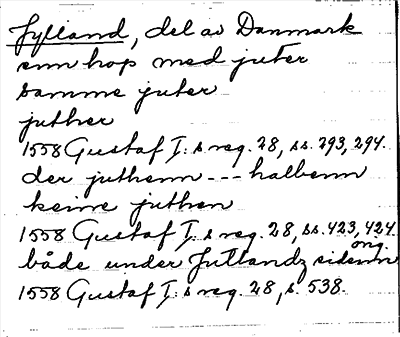 Jylland, del av Danmark
enn hop med juter
samme juter
juther
1558 Gustaf I:s reg. 28, ss. 293, 294.
der juthenn --- halbenn
keine juthen
1558 Gustaf I:s reg. 28, ss. 423, 424.
orig.
både under Jutlandz sidenn
1558 Gustaf I:s reg. 28, s. 538.